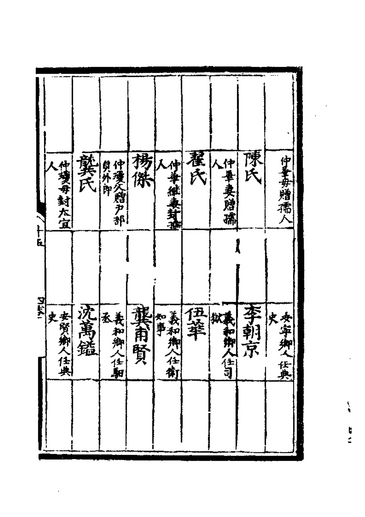 仲㬢母贈孺人
陳氏
仲㬢妻贈孺人
翟氏
仲㬢繼妻封孺人
楊傑
仲瓊父贈戶部員外郎
龔氏
仲瓊母封太宜人
安寧鄉人任典史
李朝京
義和鄉人任司獄
伍華
義和鄉人任衛知事
龔甫賢
義和鄉人任縣丞
沈萬鎰
安賢鄉人任典史